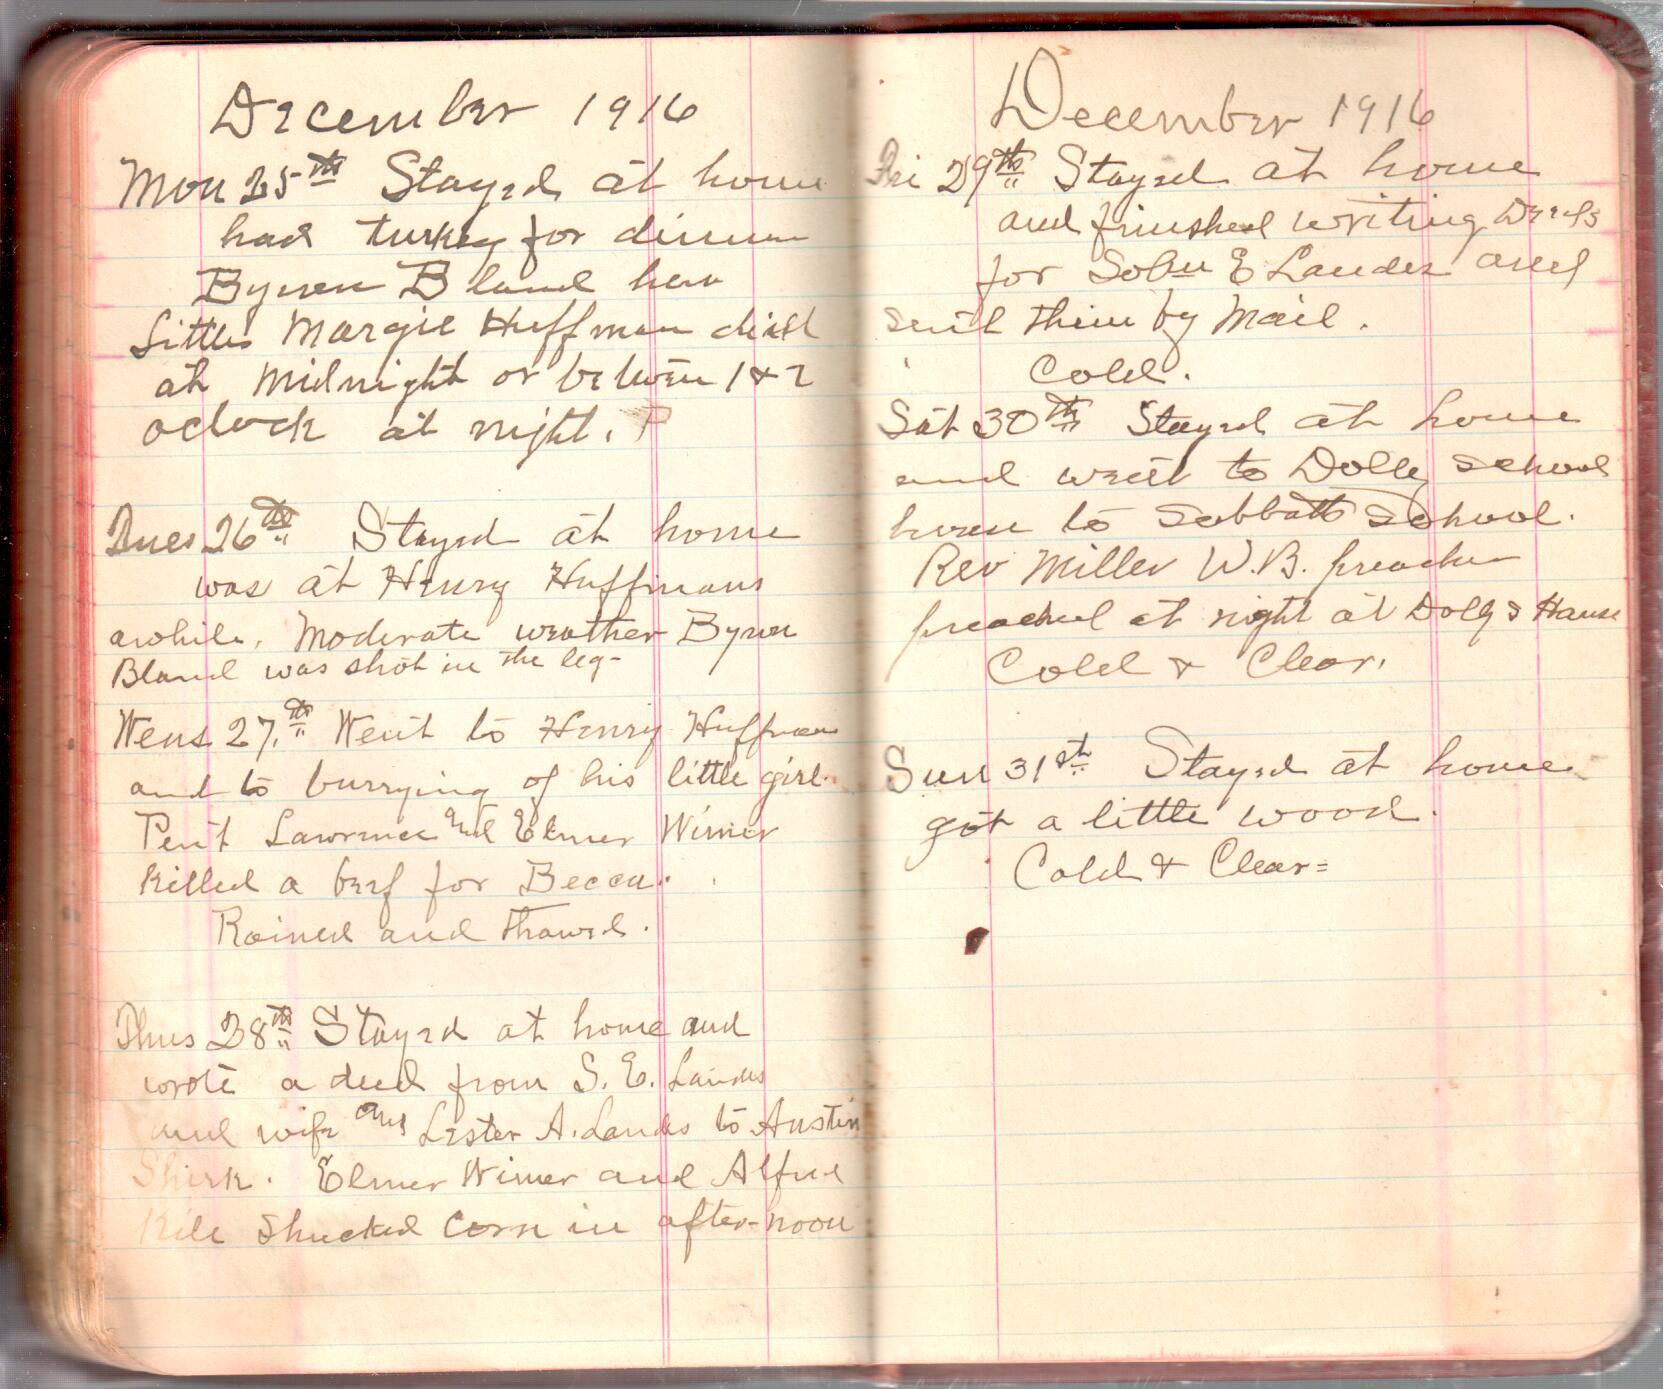 December 1916
Mon 25th Stayed at home
had turkey for dinner
Byron Bland here
Little Margie Huffman died
at Midnight or between 1 & 2
oclock at night.
Tues 26th Stayed at home
was at Henry Huffmans
awhile. Moderate weather Byron
Bland was shot in the leg-
Wens 27.th Went to Henry Huffman
and to burrying of his little girl.
Lawrence and Elmer Wimer
Killed a beef for Becca.
Rained and thawed.
Thus 28th Stayed at home and
wrote a deed from S. E. Landes
and wife and Lester A. Landes to Austin
Shirk. Elmer Wimer and Alfred
Kile Shucked Corn in after-noon
December 1916
Fri 29th Stayed at home
and finshed writing Deeds
for E Landes and
sent them by Mail.
Cold.
Sat 30th Stayed at home
and went to Dolly School
house to Sabbath School.
Rev Miller W.B. preacher
preached at night at Dollys House
Cold & Clear.
Sun 31st Stayed at home
got a little wood.
Cold & Clear=